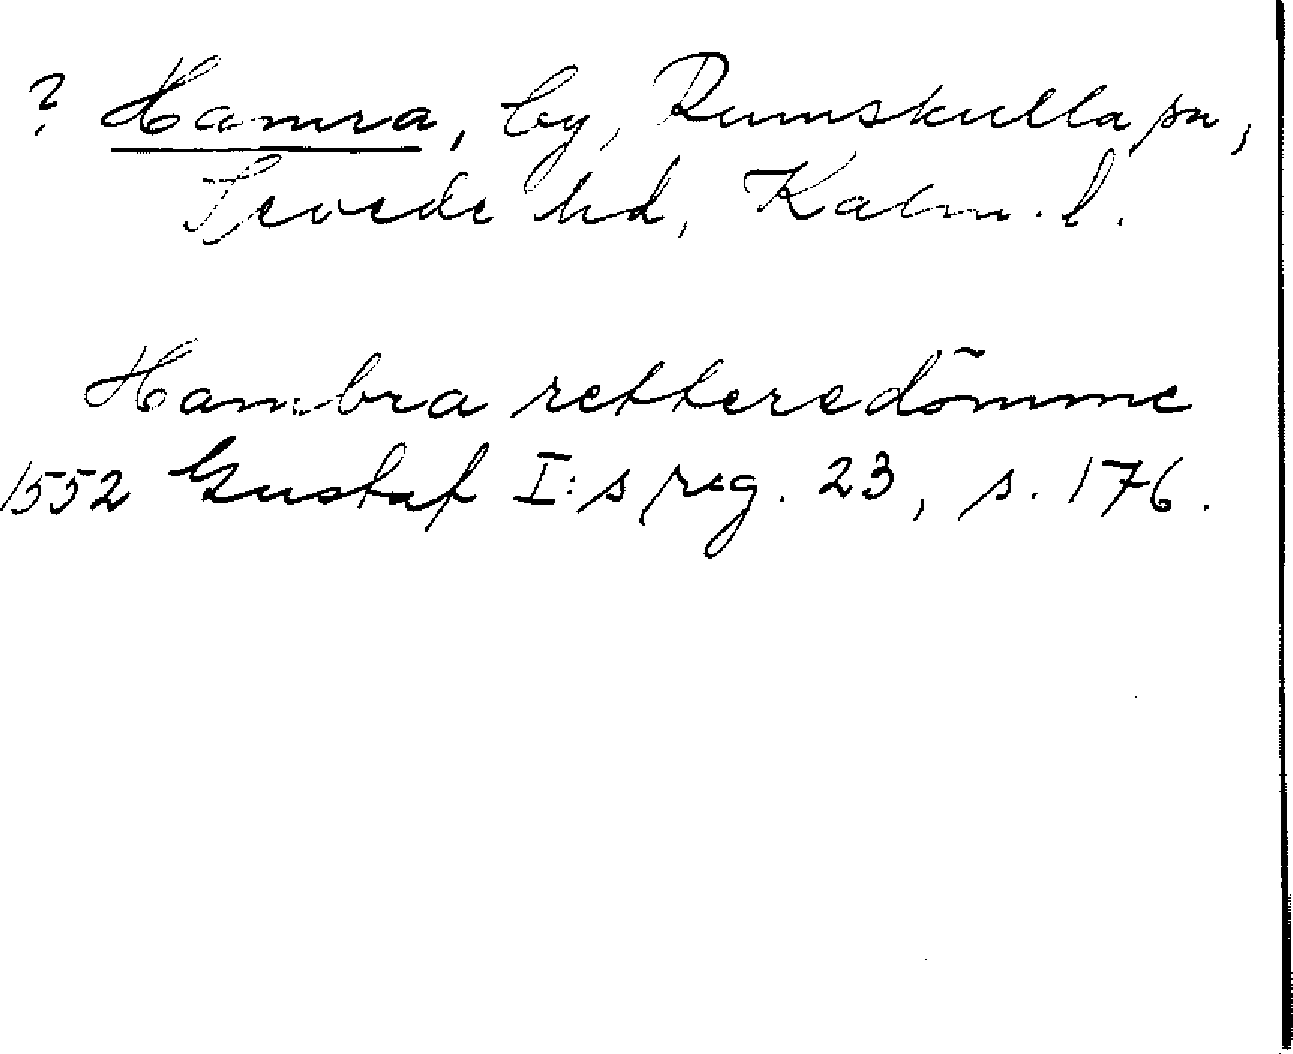 ? Hamra, by, Rumskulla sn,
Sevede hd, Kalm. l.
Hambra retteredömme
1552 Gustaf I:s reg. 23, s. 176.